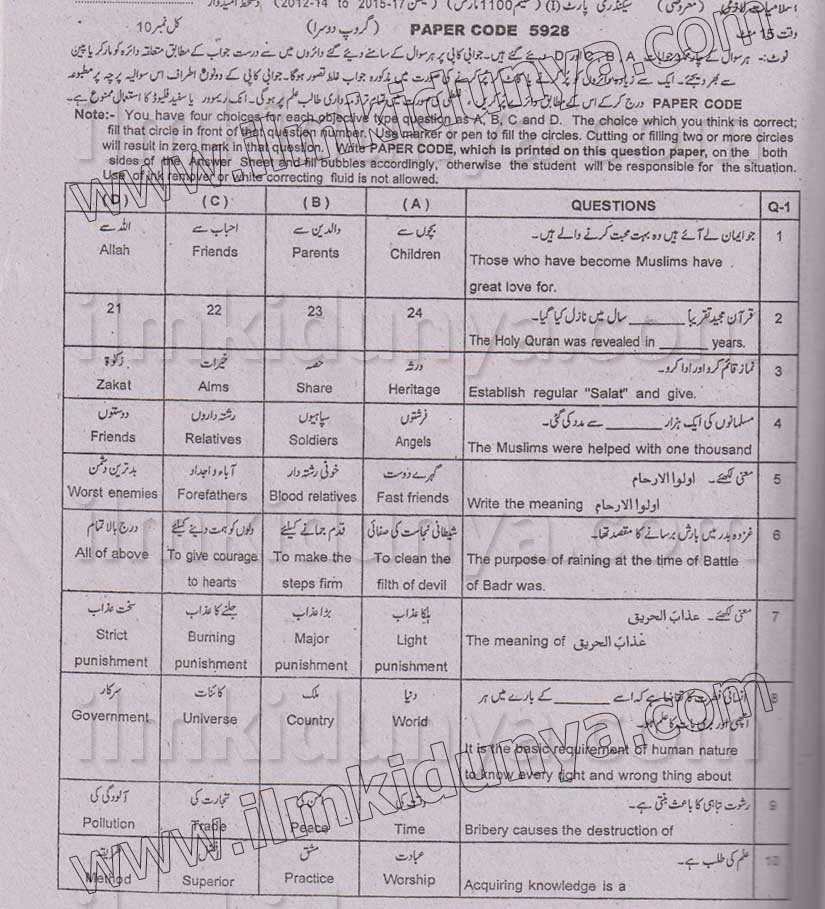 اسلامیات لازمی (معروضی) سیکنڈری پارٹ (I) 2012-14 to 2015-17
وقت 15 منٹ (گروپ دوسرا) PAPER CODE 5928 کل نمبر 10
نوٹ:- ہر سوال کے چار مجوزہ جوابات A، B، C اور D دیئے گئے ہیں۔ جوابی کاپی پر ہر سوال کے سامنے دیئے گئے دائروں میں سے درست جواب کے مطابق متعلقہ دائرہ کو مارکر یا پین
سے بھر دیجئے۔ ایک سے زیادہ دائروں کو پُر کرنے یا کاٹ کر پُر کرنے کی صورت میں مذکورہ جواب غلط تصور ہوگا۔ جوابی کاپی کے دونوں اطراف اس سوالیہ پرچہ پر مطبوعہ
PAPER CODE درج کر کے اس کے مطابق دائرے پُر کریں، غلطی کی صورت میں تمام تر ذمہ داری طالب علم پر ہوگی۔ انک ریموور یا سفید فلیوڈ کا استعمال ممنوع ہے۔
Note:- You have four choices for each objective type question as A, B, C and D. The choice which you think is correct;
fill that circle in front of that question number. Use marker or pen to fill the circles. Cutting or filling two or more circles
will result in zero mark in that question. Write PAPER CODE, which is printed on this question paper, on the both
sides of the Answer Sheet and fill bubbles accordingly, otherwise the student will be responsible for the situation.
Use of ink remover or white correcting fluid is not allowed.
(D) (C) (B) (A) QUESTIONS Q-1
اللہ سے احباب سے والدین سے بچوں سے جو ایمان لے آئے ہیں وہ بہت محبت کرنے والے ہیں۔ 1
Allah Friends Parents Children Those who have become Muslims have
great love for.
21 22 23 24 قرآن مجید تقریباً ______ سال میں نازل کیا گیا۔ 2
The Holy Quran was revealed in ______ years.
زکوٰۃ خیرات حصہ ورثہ نماز قائم کرو اور ادا کرو۔ 3
Zakat Alms Share Heritage Establish regular "Salat" and give.
دوستوں رشتہ داروں سپاہیوں فرشتوں مسلمانوں کی ایک ہزار ______ سے مدد کی گئی۔ 4
Friends Relatives Soldiers Angels The Muslims were helped with one thousand
بدترین دشمن آباء و اجداد خونی رشتہ دار گہرے دوست معنی لکھئے۔ اولوا الارحام 5
Worst enemies Forefathers Blood relatives Fast friends Write the meaning اولوا الارحام
درج بالا تمام دلوں کو ہمت دینے کیلئے قدم جمانے کیلئے شیطانی نجاست کی صفائی غزوہ بدر میں بارش برسانے کا مقصد تھا۔ 6
All of above To give courage To make the To clean the The purpose of raining at the time of Battle
to hearts steps firm filth of devil of Badr was.
سخت عذاب جلنے کا عذاب بڑا عذاب ہلکا عذاب معنی لکھئے۔ عذاب الحریق 7
Strict Burning Major Light The meaning of عذاب الحریق
punishment punishment punishment punishment
سرکار کائنات ملک دنیا انسانی فطرت کا تقاضا ہے کہ اسے ______ کے بارے میں ہر 8
Government Universe Country World اچھی اور بری بات کا علم ہو۔
It is the basic requirement of human nature
to know every right and wrong thing about
آلودگی کی تجارت کی امن کی وقت کی رشوت تباہی کا باعث بنتی ہے۔ 9
Pollution Trade Peace Time Bribery causes the destruction of
مشق عبادت علم کی طلب ہے۔ 10
Method Superior Practice Worship Acquiring knowledge is a
www.ilmkidunya.com
ilmkidunya.com
www.ilmkidunya.com